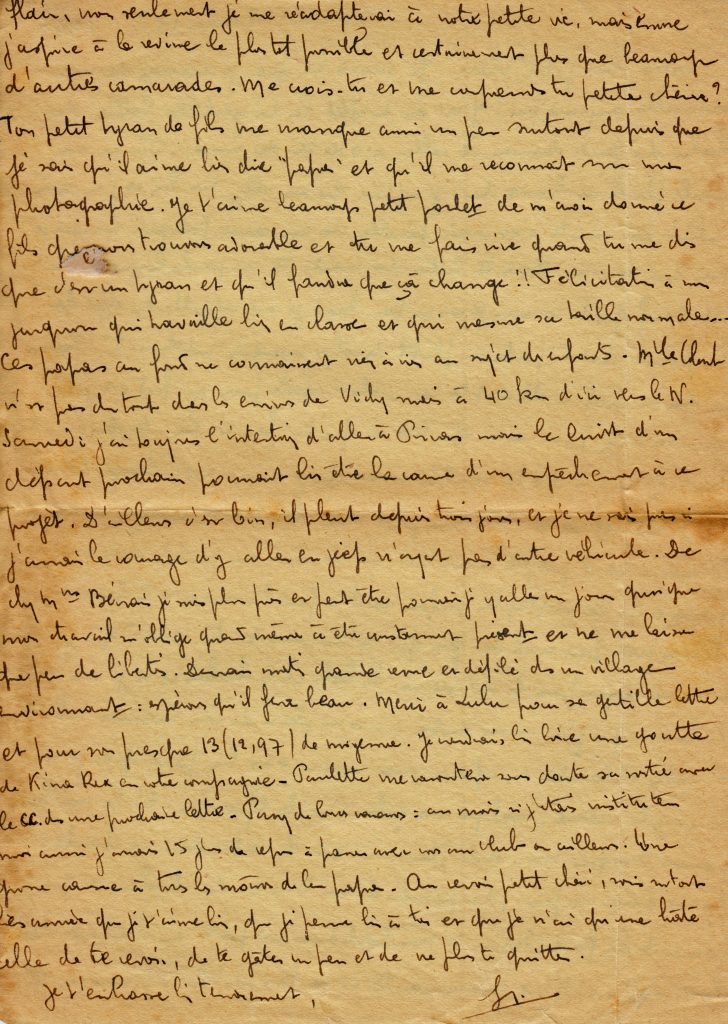 plaît, non seulement je me réadapterai à notre petite vie, mais encore
j'aspire à la revivre le plus tôt possible et certainement plus que beaucoup
d'autres camarades. Me crois-tu et me comprends tu petite chérie?
Ton petit tyran de fils me manque aussi un peu surtout depuis que
je sais qu'il aime bien dire "papa" et qu'il me reconnait sur ma
photographie. Je t'aime beaucoup petit poulet de m'avoir donné ce
fils que nous trouvons adorable et tu me fais rire quand tu me dis
que c'est un tyran et qu'il faudra que çà change!! Félicitation à
qui travaille bien en classe et qui mesure sa taille normale...
Ces papas au fond ne connaissent rien à rien au sujet des enfants. Mlle
n'est pas du tout dans les environs de Vichy mais à 40 km d'ici vers le N.
Samedi j'ai toujours l'intention d'aller à mais le bruit d'un
départ prochain pourrait bien être la cause d'un empêchement à ce
projet. D'ailleurs c'est loin, il pleut depuis trois jours, et je ne sais pas si
j'aurais le courage d'y aller en jeep n'ayant pas d'autre véhicule. De
chez Mme je suis plus près et peut être pourrai-je y aller un jour quoique
mon travail m'oblige quand même à être constamment présent et ne me laisse
que peu de liberté. Demain matin grande revue et défilé dans un village
environnant : espérons qu'il fera beau. Merci à Lulu pour sa gentille lettre
et pour son presque 13 (12,97) de moyenne. Je voudrais bien boire une goutte
de Kina Rex en votre compagnie - Paulette me racontera sans doute sa sortie avec
le cc. dans une prochaine lettre - de leurs vacances : au moins si j'étais instituteur
moi aussi j'aurais 15 jrs de repos à passer avec vous au club ou ailleurs. Une
grosse caresse à tous les de leur papa. Au revoir petit chéri, sois surtout
bien assurée que je t'aime bien, que je pense bien à toi et que je n'ai qu'une hâte
celle de te revoir, de te gâter un peu et de ne plus te quitter.
Je t'embrasse bien tendrement,